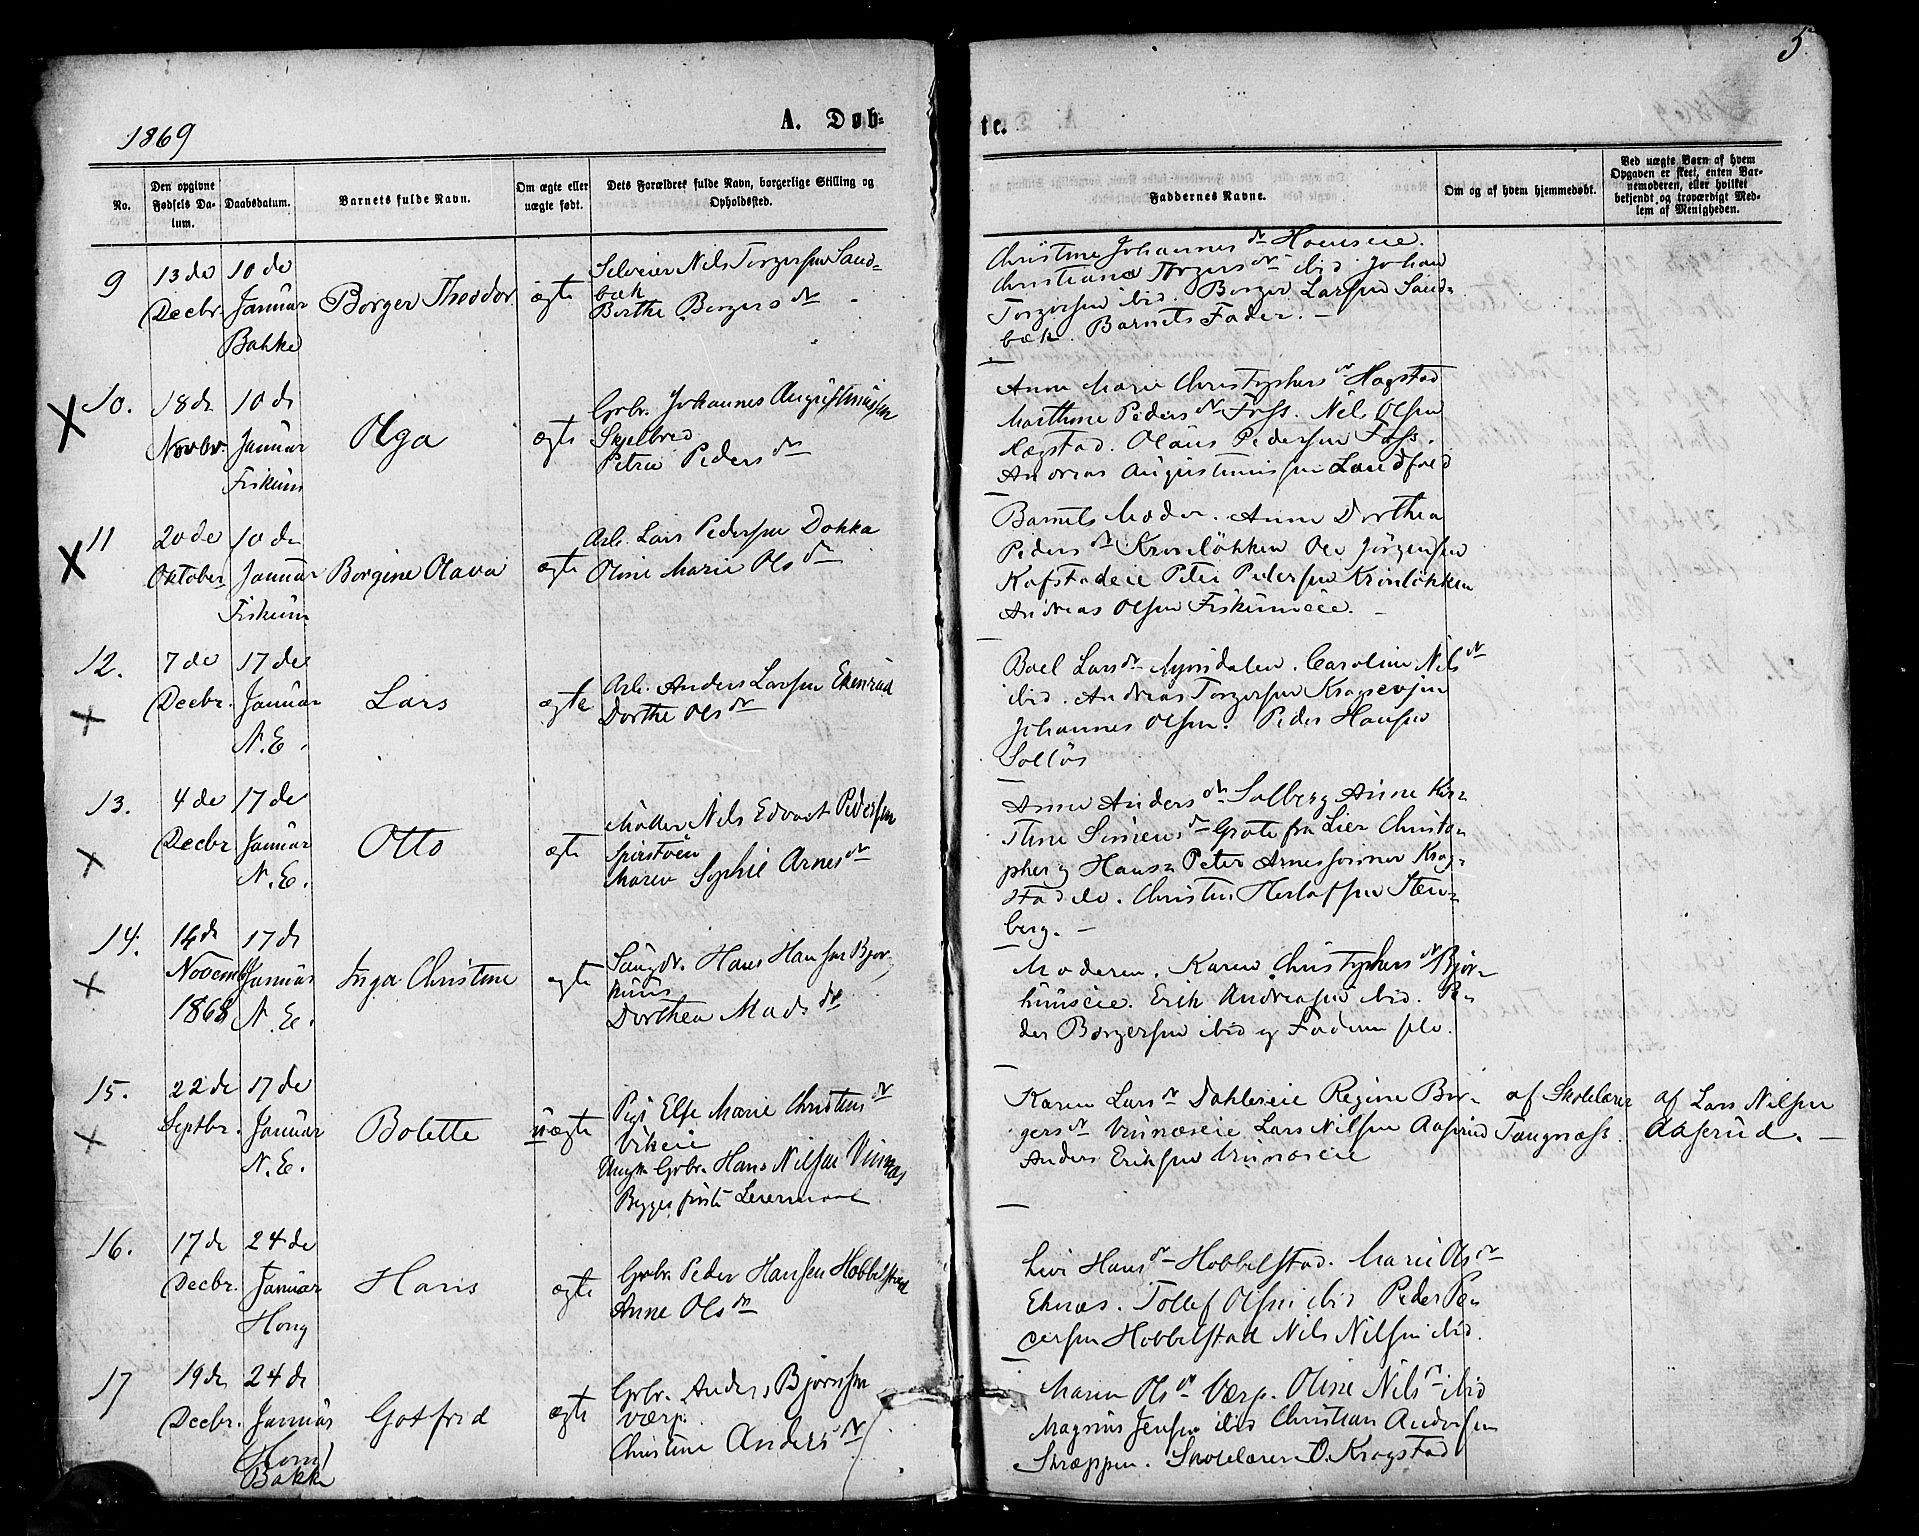 1869
A. Døb-
te.
5
No.
Den opgivne Fødsels Da-
tum.
Daabsdatum.
Barnets fulde Navn.
Om ægte eller
uægte født.
Dets Forældres fulde Navn, borgerlige Stilling og
Opholdssted.
Faddernes Navne.
Om og af hvem hjemmedøbt.
Ved uægte Børn af hvem
Opgaven er skeet, enten Bar-
nemoderen, eller hvilket
bekjendt og troværdigt Med-
lem af Menigheden.
9
13 de
Decbr.
10 de
Januar
Bakke
Borger Theodor
ægte
Selveier Nils Torgersen Sand-
bæk
Berthe Borgers dr
Christine Johannes dr Hoenseie.
Christiane Torgers dr ibid. Johan
Torgersen ibid. Borger Larsen Sand-
bæk. Barnets Fader. –
10.
18 de
Novbr.
10 de
Januar
Fiskum
Olga
ægte
Grbr. Johannes Augustinussen
Skjelbred
Petrea Peders dr
Anne Marie Christophers dr Hagstad
Marthine Peders dr Foss. Nils Olsen
Hagstad. Olaus Pedersen Foss.
Andreas Augustinussen
11
20 de
Oktober
10 de
Januar
Fiskum
Borgine Olava
ægte
Arb. Lars Pedersen Dokka
Oline Marie Ols dr
Barnets Moder. Anne Dorthea
Peders dr Kronløkken Ole Jørgensen
Kafstadeie Peter Pedersen Kronløkken
Andreas Olsen Fiskumeie. –
12.
7 de
Decbr.
17 de
Januar
N.E.
Lars
ægte
Arb. Anders Larsen Ekerud
Dorthe Ols dr
Boel Lars dr Caroline Nils dr
ibid. Andreas Torgersen
Johannes Olsen. Peder Hansen
Solløs
13.
4 de
Decbr
17 de
Januar
N.E.
Otto
ægte
Møller Nils Edvart Pedersen
Maren Sophie Arnes dr
Anne Anders dr Solberg Anne Kir-
stine Simens dr Grøte fra Lier Christo-
pher og Hans Peter Arnessønner Krog-
stad Christen Herlofsen Sten-
berg. –
14.
14 de
Novemb
1868
17 de
Januar
N.E.
Inga Christine
ægte
Hans Hansen Bjør-
huus
Dorthea Mads dr
Moderen. Karen Christophers dr Bjør-
huuseie. Erik Andreasen ibid. Pe-
der Borgersen ibid og Faderen selv.
15.
22 de
Septbr.
17 de
Januar
N.E.
Bolette
uægte
Pige Else Marie Christens dr
Vikeie
Ungk. Grbr. Hans Nilsen Vinnæs
Begges første Leiermaal
Karen Lars dr Dahleseie Regine Bor-
gers dr Vinnæseie Lars Nilsen Aaserud
Anders Eriksen Vinnæseie
af Skolelærer
Tangnæss.
af Lars Nilsen
Aaserud. –
16.
17 de
Decbr.
24 de
Januar
Houg
Hans
ægte
Grbr. Peder Hansen Hobbelstad
Anne Ols dr
Livi Hans dr Hobbelstad. Marie Ols dr
Eknæs. Tollef Olsen ibid Peder Pe-
dersen Hobbelstad Nils Nilsen ibid.
17
19 de
Decbr.
24 de
Januar
Houg
Bakke
Gotfrid
ægte
Grbr. Anders Bjørnsen
Værp.
Christine Anders dr
Maren Ols dr Værp. Oline Nils dr ibid
Magnus Jensen ibid Christian Andersen
Skræppen. Skolelærer O. Krogstad